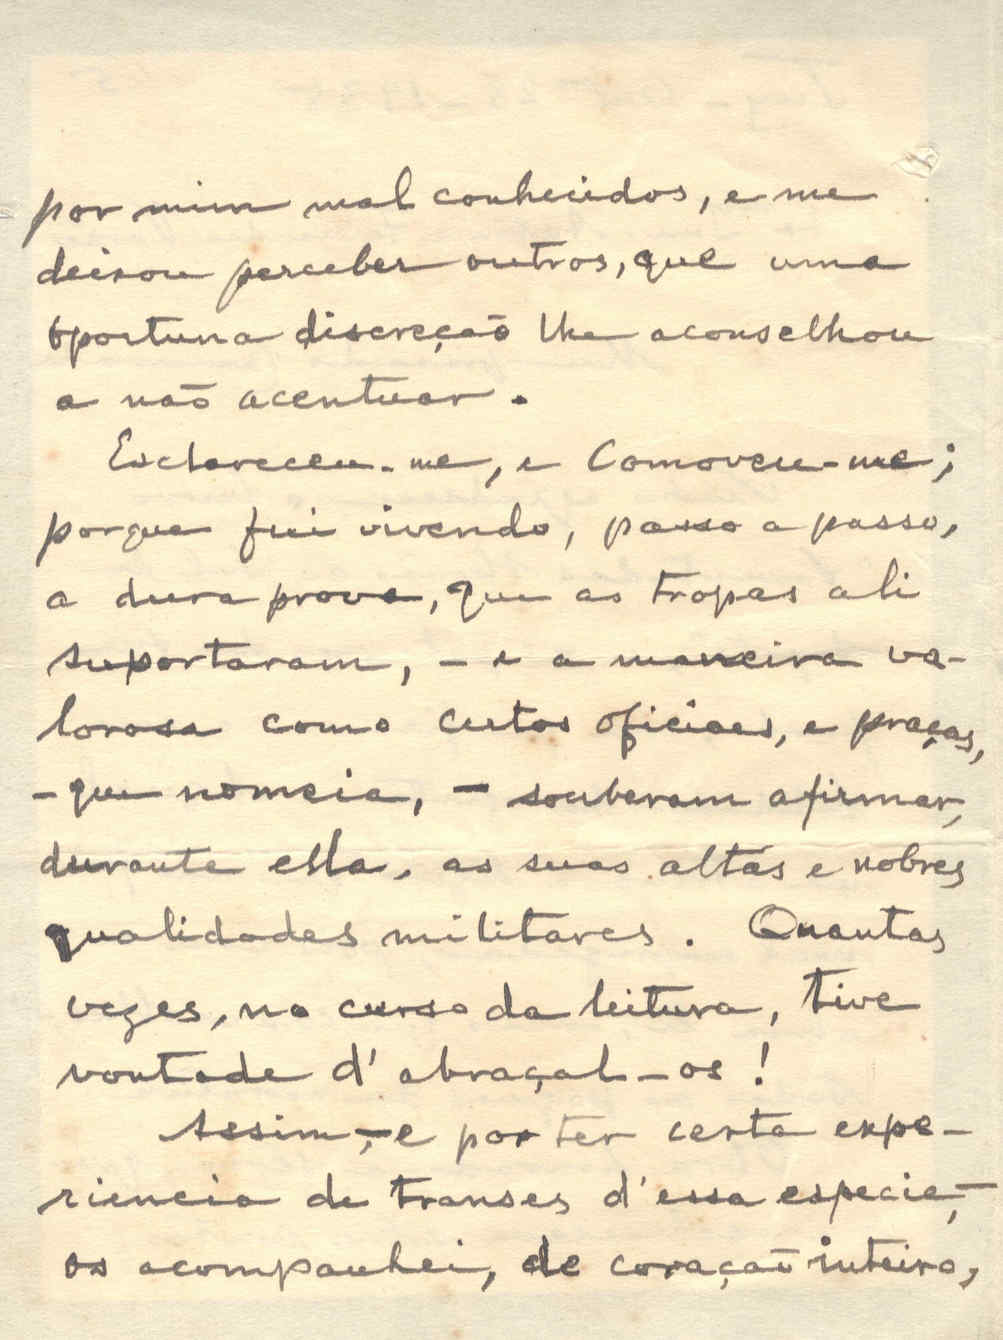 por mim mal conhecidos, e me
deixou perceber outros, que uma
oportuna discreção lhe aconselhou
a não acentuar.
Esclareceu-me, e comoveu-me;
porque fui vivendo, passo a passo,
a dura prova, que as tropas ali
suportaram, - e a maneira va-
lorosa como certos oficiaes, e praças,
- que nomeia, - souberam afirmar,
durante ella, as suas altas e nobres
qualidades militares. Quantas
vezes, no curso da leitura, tive
vontade d'abraçal-os!
Assim, - e por ter certa expe-
riencia de transes d'essa especie, -
os acompanhei, de coração inteiro,